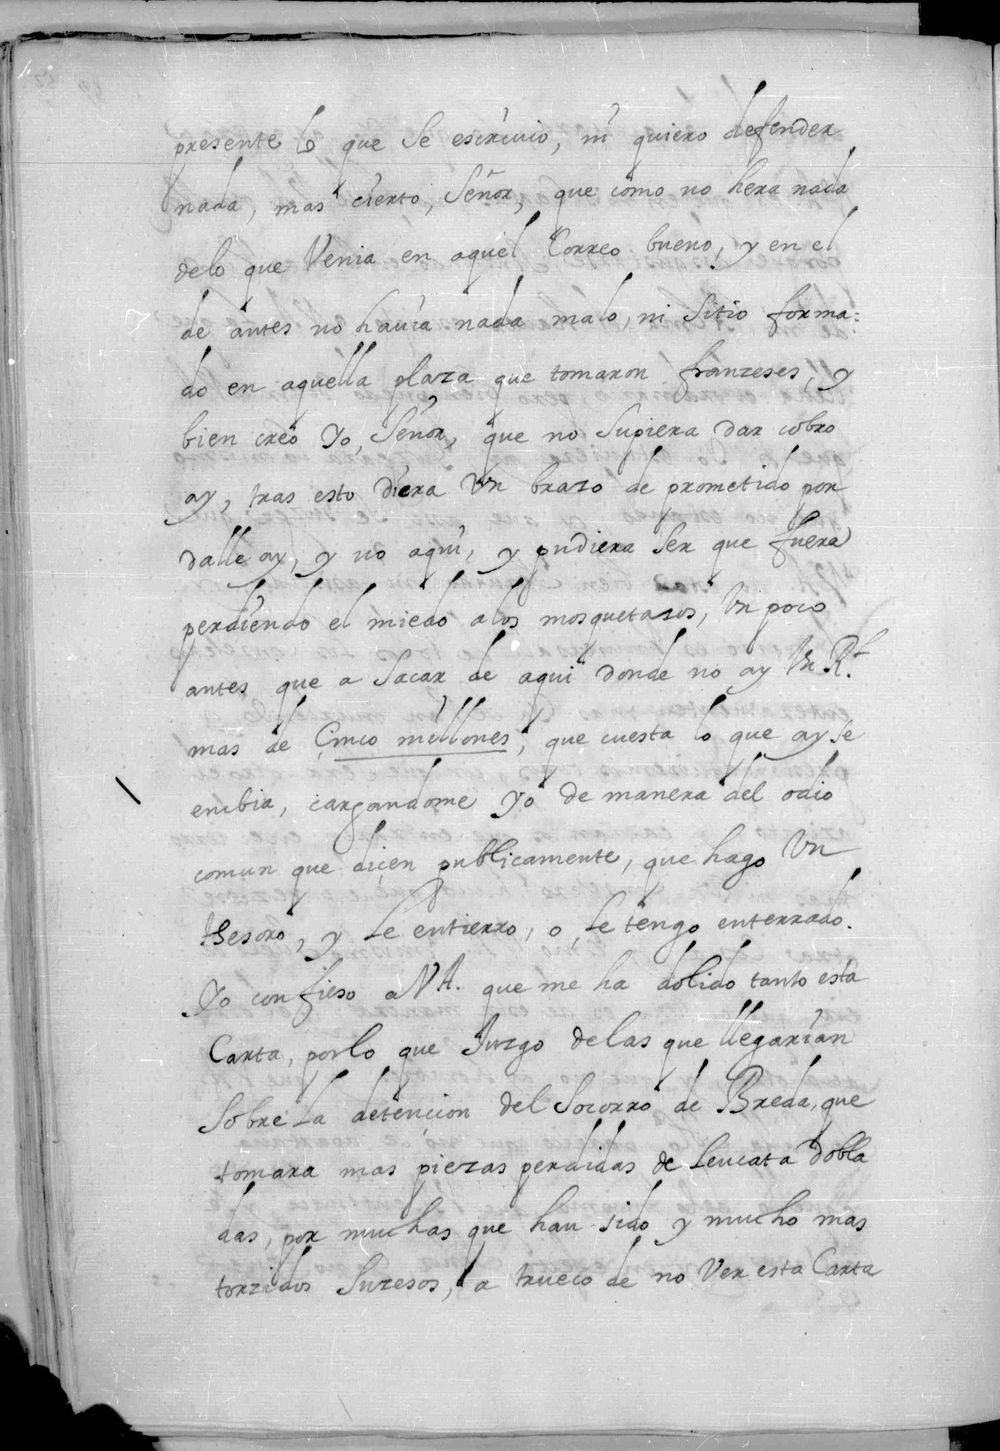 presente lo que se escriuio, ni quiero defender
nada, mas cierto, Señor, que como no hera nada
delo que Venia en aquel Correo bueno, y en el
de antes no hauia nada malo, ni sitio forma=
do en aquella plaza que tomaron franzeses, y
bien creo Yo, Señor, que no supiera dar cobro
ay, tras esto diera Vn brazo de prometido por
dalle ay, y no aqui, y pudiera ser que fuera
perdiendo el miedo alos mosquetazos, Vn poco
antes que a sacar de aqui donde no ay Vn R.l
mas de Cinco millones, que cuesta lo que ay se
embia, cargandome Yo de manera del odio
comun que dicen publicamente, que hago Vn
thesoro, y le entierro, o, le tengo enterrado.
Yo confieso a V A. que me ha dolido tanto esta
Carta, porlo que Juzgo delas que llegarian
sobre la detencion del Socorro de Breda, que
tomara mas piezas perdidas de Leucata dobla
das, por muchas que han sido y mucho mas
torzidos suzesos, a trueco de no Ver esta Carta